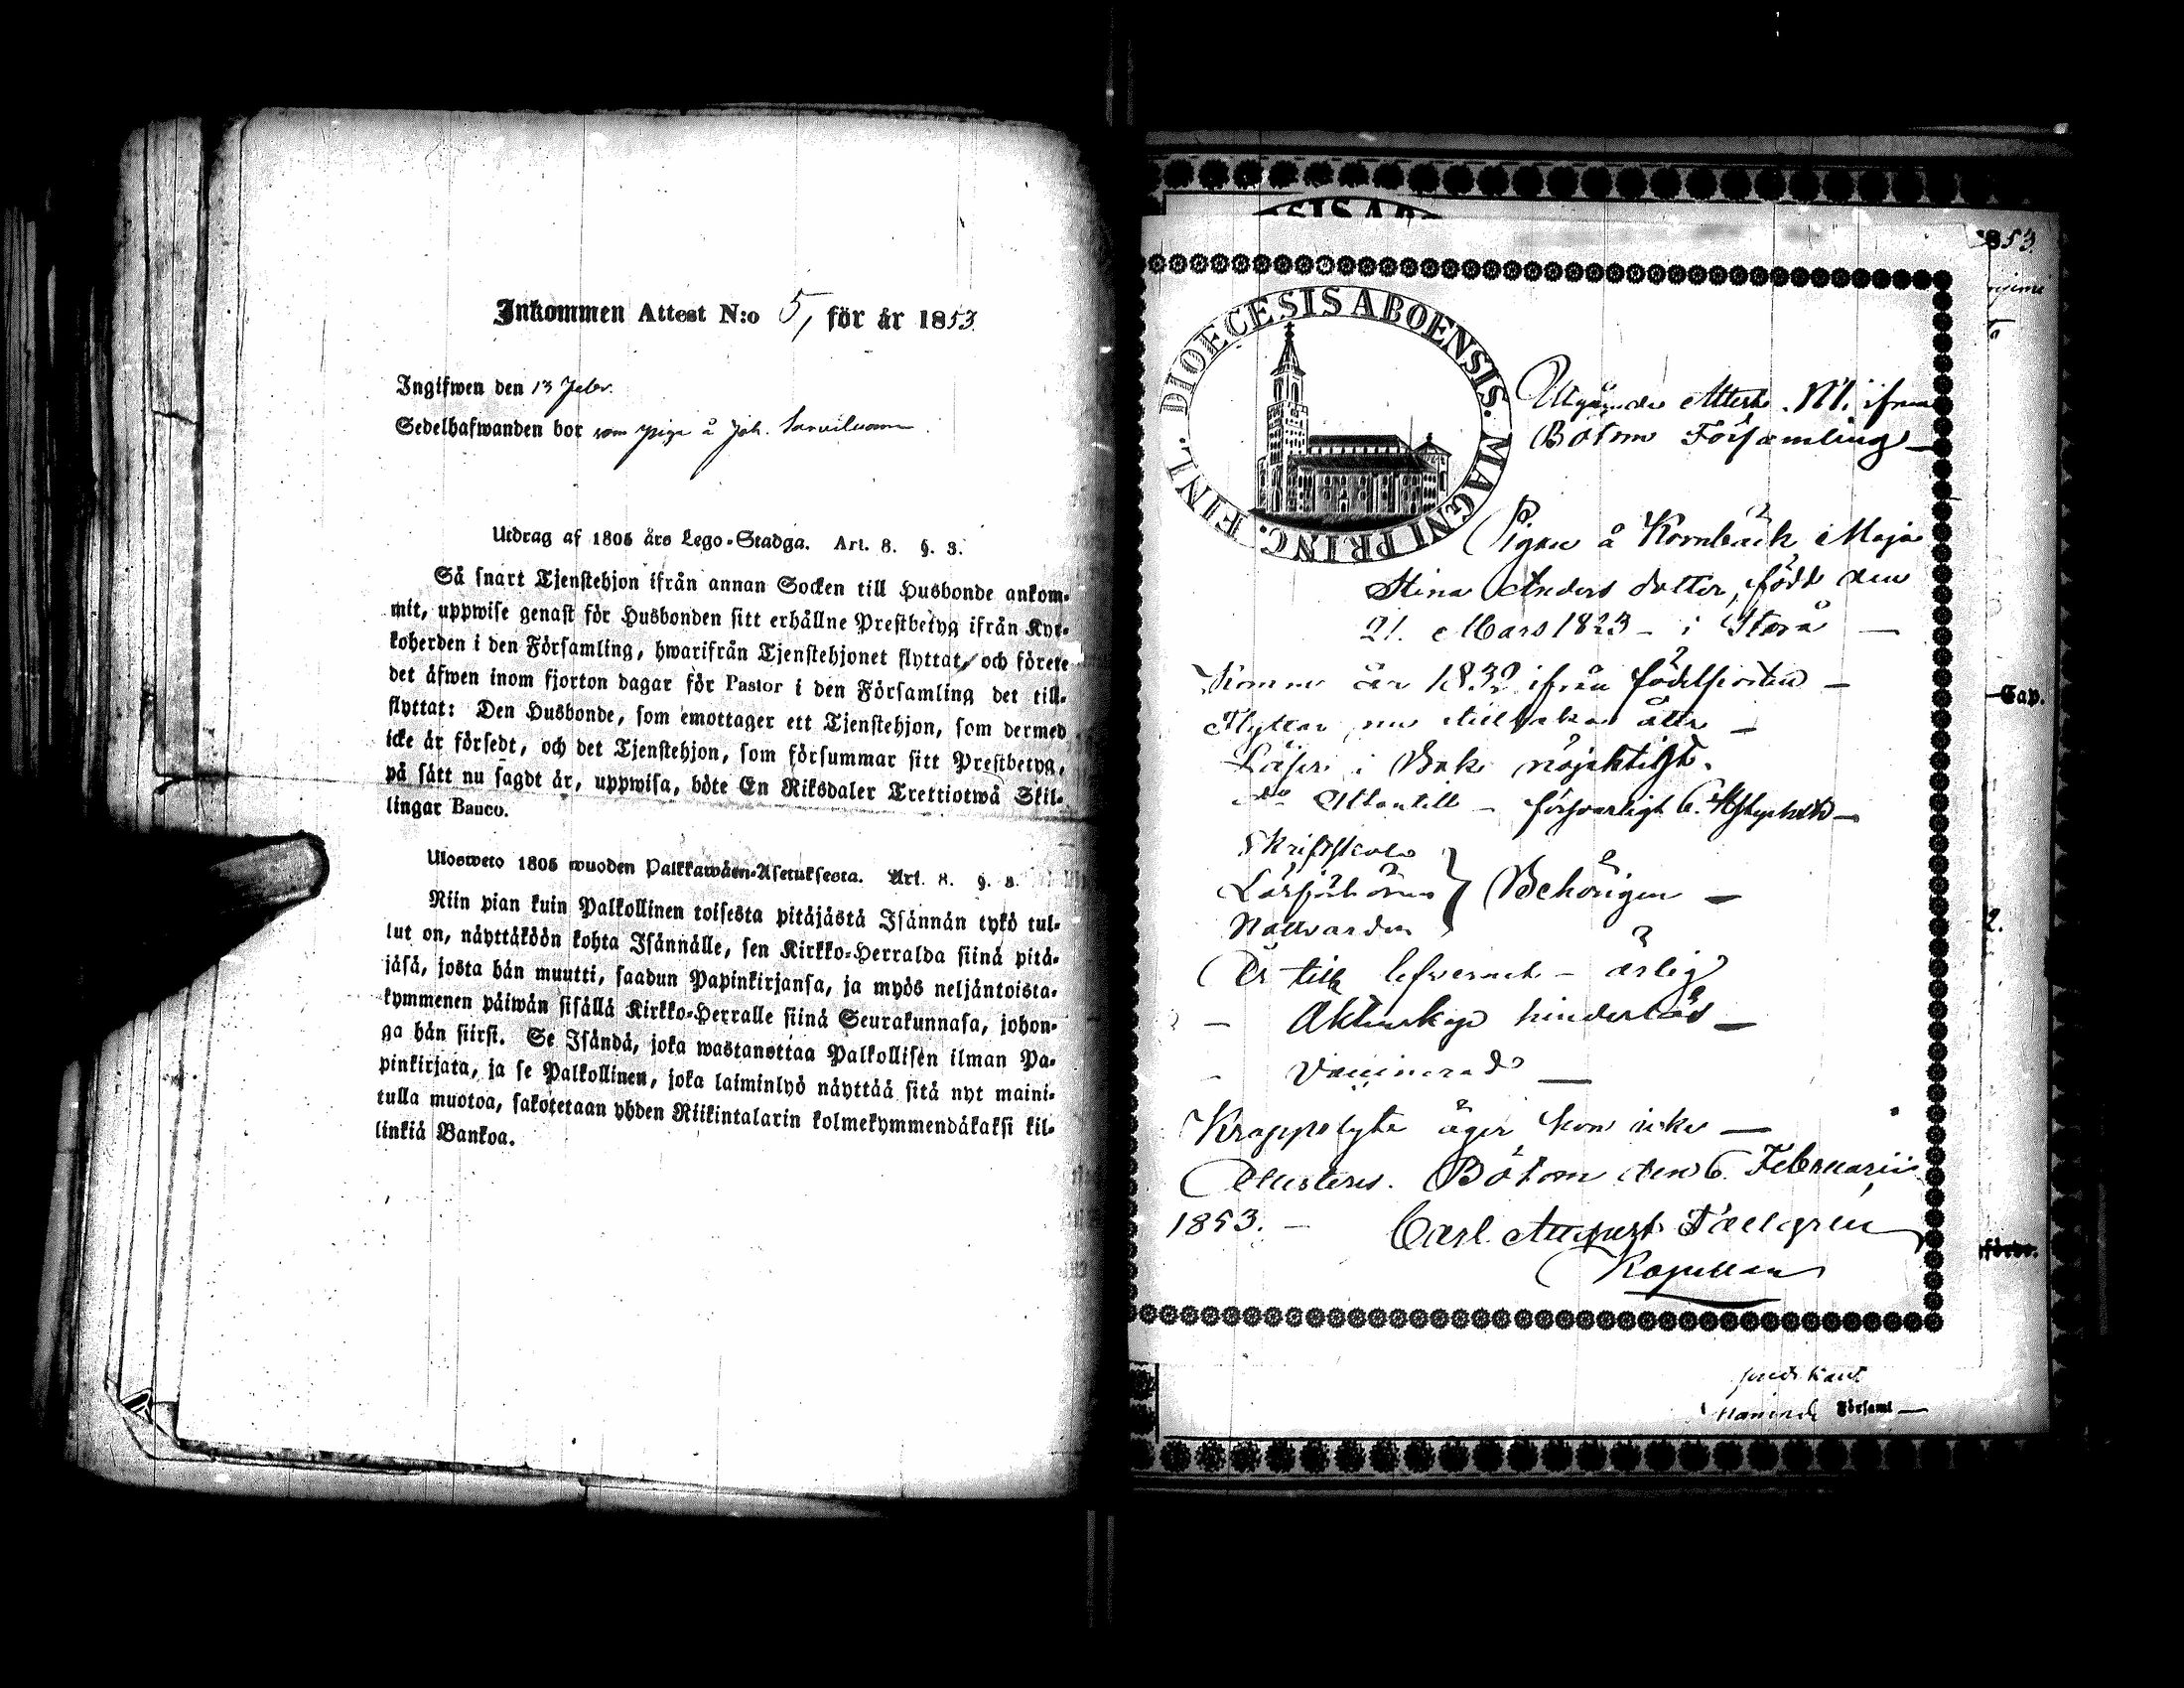 Inkommen Attest N:o 5, för år 1853.
Ingifwen den 13 Febr.
Sedelhafwanden bor som piga å Joh.
Utdrag af 1805 års Lego-Stadga. Art. 8. §. 3.
Så snart Tjenstehjon ifrån annan Socken till Husbonde ankom-
mit, uppwise genast för Husbonden sitt erhållne Prestbetyg ifrån Kyr-
koherden i den Församling, hwarifrån Tjenstehjonet flyttat, och förete
det äfwen inom fjorton dagar för Pastor i den Församling det till-
flyttat: Den Husbonde, som emottager ett Tjenstehjon, som dermed
icke är försedt, och det Tjenstehjon, som försummar sitt Prestbetyg,
på sätt nu sagdt är, uppwisa, böte En Riksdaler Trettiotwå Skil-
lingar Banco.
Ulosweto 1805 wuoden Palkkawäen-Asetuksesta. Art. 8. §. 3.
Niin pian kuin Palkollinen toisesta pitäjästä Isännän tykö tul-
lut on, näyttäköön kohta Isännälle, sen Kirkko-Herralda siinä pitä-
jäsä, josta hän muutti, saadun Papinkirjansa, ja myös neljäntoista-
kymmenen päiwän sisällä Kirkko-Herralle siinä Seurakunnasa, johon-
ga hän siirsi. Se Isändä, joka wastanottaa Palkollisen ilman Pa-
pinkirjata, ja se Palkollinen, joka laiminlyö näyttää sitä nyt maini-
tulla muotoa, sakotetaan yhden Riikintalarin kolmekymmendäkaksi kil-
linkiä Bankoa.
SIS AB
853
DIOECESIS ABOENSIS. MAGNI PRINC. FINL.
Utgående Attest N1. ifrån
Bötom Församling
Pigan å Kornbäck Maja
Stina Anders dotter, född den
21. Mars 1823 - i Storå
Kommen år 1832 ifrån födelseorten
Flyttar nu tillbaka åter
Läser i Bok nöjaktigt.
do Utantill - försvarligt C. Stycken
Skriftskola
Läsförhören } Behörigen
Nattvarden
Är till lefvernet - ärlig
- Äktenskap hinderlös
- Vaccinerad
Kroppslyte äger hon icke
Attesteras. Bötom den 6. Februarii
1853. - Carl August Tallgren
Kapellan
Cap.
2.
Församl